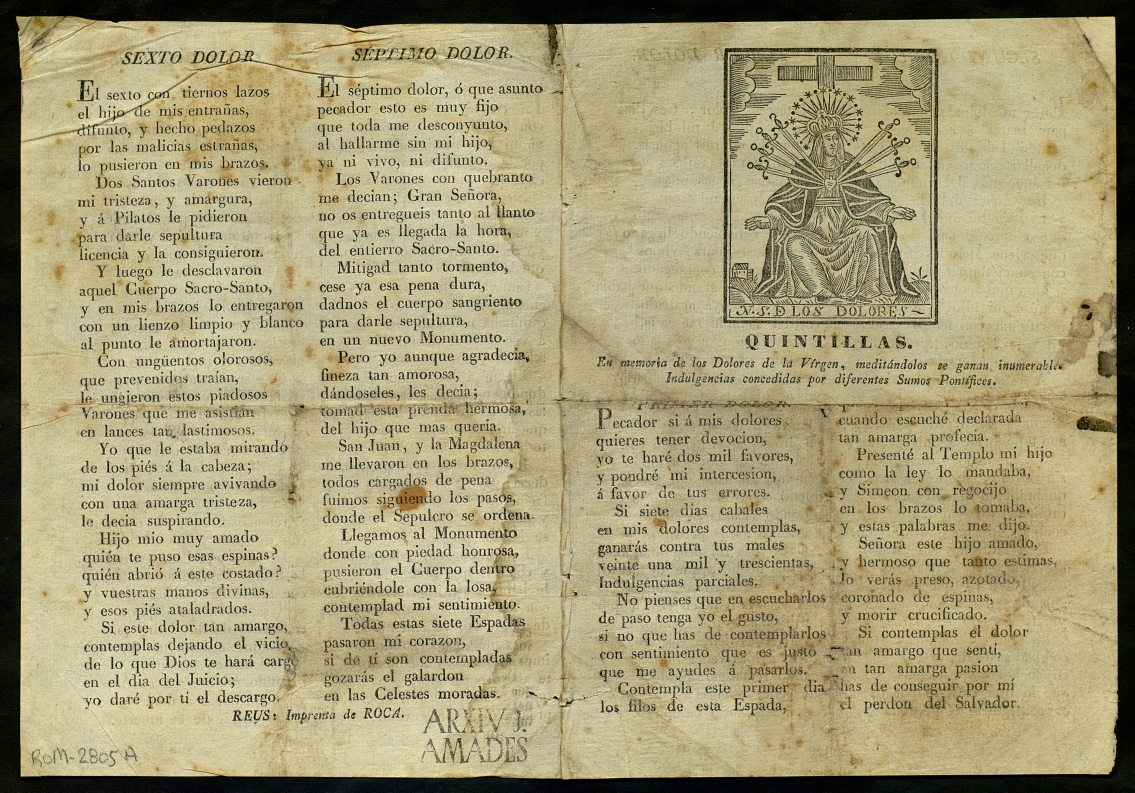 SEXTO DOLOR
El sexto con tiernos lazos
el hijo de mis entrañas,
difunto, y hecho pedazos
por las malicias estrañas,
lo pusieron en mis brazos.
Dos Santos Varones vieron
mi tristeza, y amargura,
y á Pilatos le pidieron
para darle sepultura
licencia y la consiguieron.
Y luego le desclavaron
aquel Cuerpo Sacro-Santo,
y en mis brazos lo entregaron
con un lienzo limpio y blanco
al punto le amortajaron.
Con ungüentos olorosos,
que prevenidos traían,
le ungieron estos piadosos
Varones que me asistían
en lances tan lastimosos.
Yo que le estaba mirando
de los piés á la cabeza;
mi dolor siempre avivando
con una amarga tristeza,
le decia suspirando.
Hijo mio muy amado
quién te puso esas espinas?
quién abrió á este costado?
y vuestras manos divinas,
y esos piés ataladrados.
Si este dolor tan amargo,
contemplas dejando el vicio,
de lo que Dios te hará cargo
en el dia del Juicio;
yo daré por tí el descargo.
SÉPTIMO DOLOR.
El séptimo dolor, ó que asunto
pecador esto es muy fijo
que toda me desconyunto,
al hallarme sin mi hijo,
ya ni vivo, ni difunto.
Los Varones con quebranto
me decian; Gran Señora,
no os entregueis tanto al llanto
que ya es llegada la hora,
del entierro Sacro-Santo.
Mitigad tanto tormento,
cese ya esa pena dura,
dadnos el cuerpo sangriento
para darle sepultura,
en un nuevo Monumento.
Pero yo aunque agradecia,
fineza tan amorosa,
dándoseles, les decia;
tomad esta prenda hermosa,
del hijo que mas queria.
San Juan, y la Magdalena
me llevaron en los brazos,
todos cargados de pena
fuimos siguiendo los pasos,
donde el Sepulcro se ordena.
Llegamos al Monumento
donde con piedad honrosa,
pusieron el Cuerpo dentro
cubriéndole con la losa,
contemplad mi sentimiento.
Todas estas siete Espadas
pasaron mi corazon,
si de tí son contempladas
gozarás el galardon
en las Celestes moradas.
REUS: Imprenta de ROCA.
ARXIV J.
AMADES
ROM-2805 A
N. S. D LOS DOLORES
QUINTILLAS.
En memoria de los Dolores de la Vírgen, meditándolos se ganan inumerables
Indulgencias concedidas por diferentes Sumos Pontífices.
PRIMER DOLOR.
Pecador si á mis dolores
quieres tener devocion,
yo te haré dos mil favores,
y pondré mi intercesion,
á favor de tus errores.
Si siete dias cabales
en mis dolores contemplas,
ganarás contra tus males
veinte una mil y trescientas,
Indulgencias parciales.
No pienses que en escucharlos
de paso tenga yo el gusto,
si no que has de contemplarlos
con sentimiento que es justo
que me ayudes á pasarlos.
Contempla este primer dia
los filos de esta Espada,
cuando escuché declarada
tan amarga profecía.
Presenté al Templo mi hijo
como la ley lo mandaba,
y Simeon con regocijo
en los brazos lo tomaba,
y estas palabras me dijo.
Señora este hijo amado,
y hermoso que tanto estimas,
lo verás preso, azotado,
coronado de espinas,
y morir crucificado.
Si contemplas el dolor
tan amargo que sentí,
en tan amarga pasion
has de conseguir por mí
el perdon del Salvador.